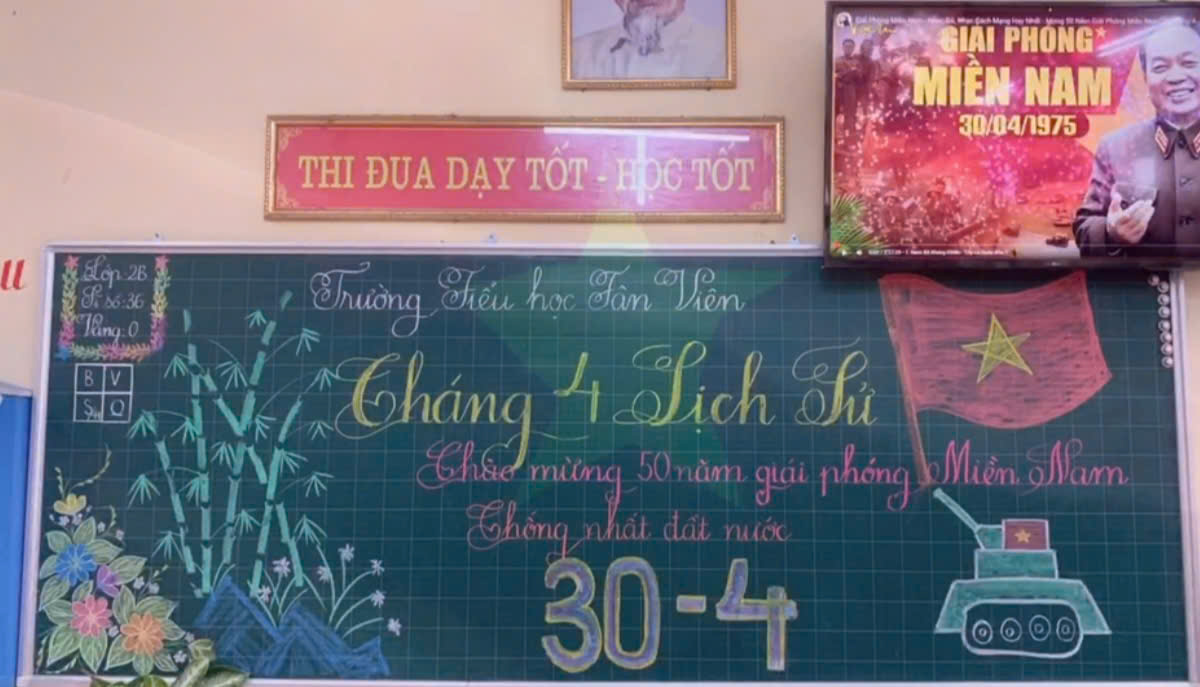 GIẢI PHÓNG
MIỀN NAM
30/04/1975
THI ĐUA DẠY TỐT - HỌC TỐT
Lớp: 2B
Sĩ số: 36
Vắng: 0
B V
S Q
Trường Tiểu học Tân Viên
Tháng 4 Lịch Sử
Chào mừng 50 năm giải phóng Miền Nam
Thống nhất đất nước
30-4